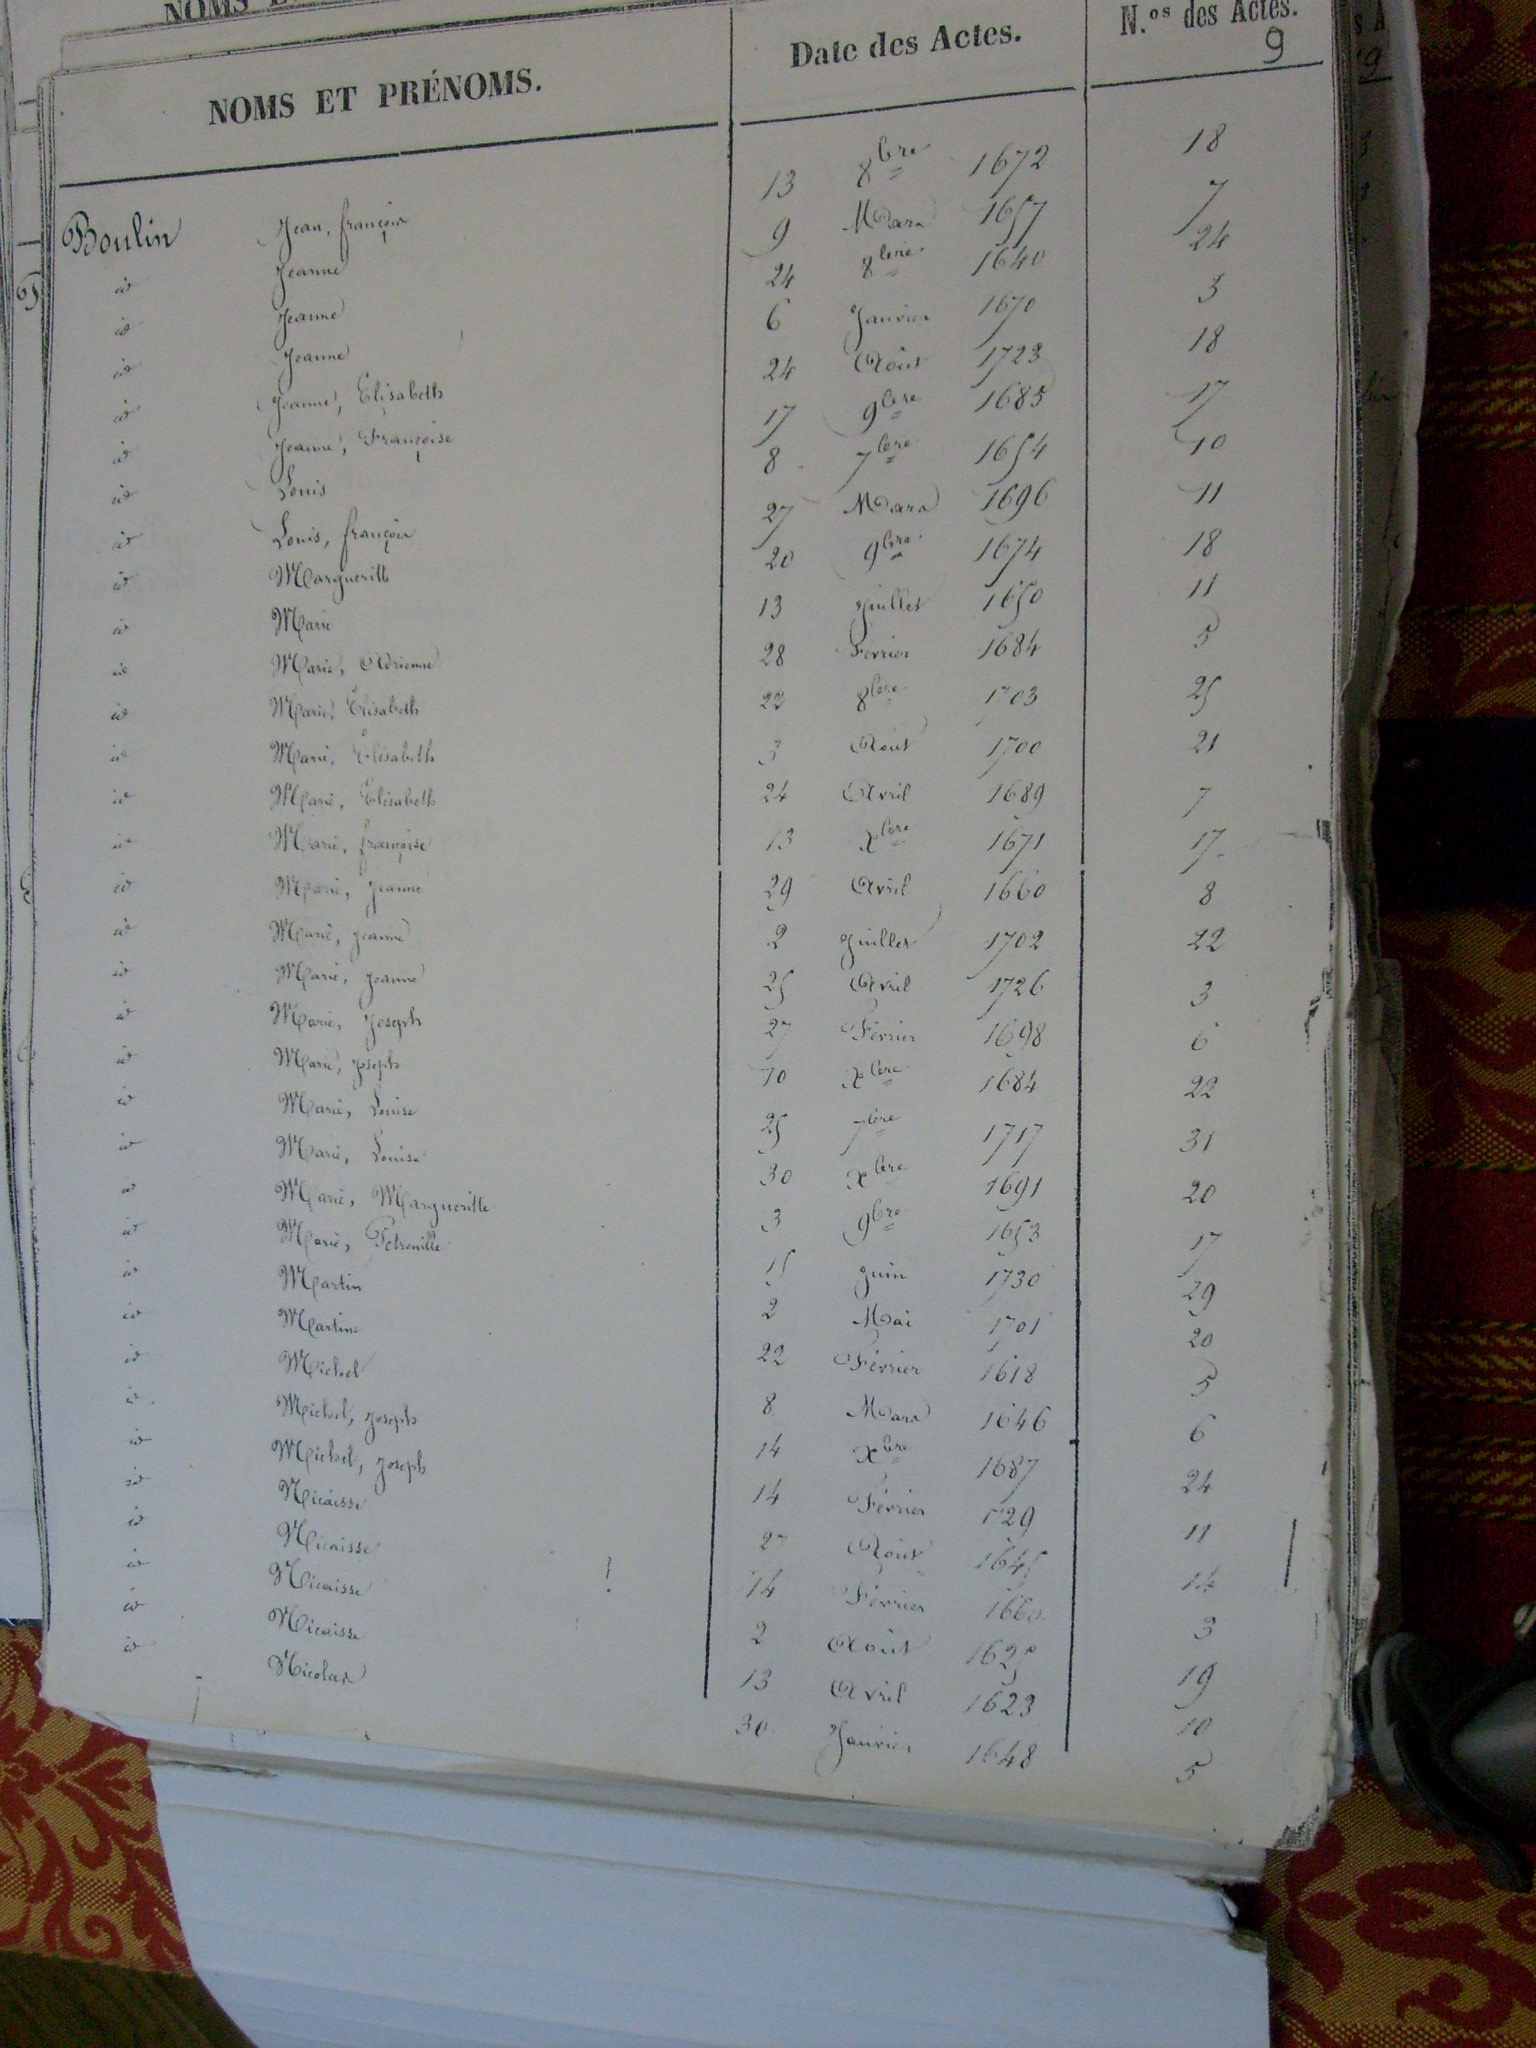 NOMS E
NOMS ET PRÉNOMS. Date des Actes. N.os des Actes.
9
Boulin Jean, françois 13 8bre 1672 18
id Jeanne 9 Mars 1657 7
id Jeanne 24 8bre 1640 24
id Jeanne 6 Janvier 1670 3
id Jeanne, Elisabeth 24 Août 1723 18
id Jeanne, Françoise 17 9bre 1685 17
id Louis 8 7bre 1654 10
id Louis, françois 27 Mars 1696 11
id Margueritte 20 9bre 1674 18
id Marie 13 Juillet 1650 11
id Marie, Adrienne 28 Fevrier 1684 5
id Marie, Elisabeth 22 8bre 1703 25
id Marie, Elisabeth 3 Août 1700 21
id Marie, Elisabeth 24 Avril 1689 7
id Marie, françoise 13 xbre 1671 17
id Marie, Jeanne 29 Avril 1660 8
id Marie, Jeanne 2 Juillet 1702 22
id Marie, Jeanne 25 Avril 1726 3
id Marie, Joseph 27 Février 1698 6
id Marie, Joseph 10 xbre 1684 22
id Marie, Louise 25 7bre 1717 31
id Marie, Louise 30 xbre 1691 20
id Marie, Margueritte 3 9bre 1653 17
id Marie, Petronille 15 Juin 1730 29
id Martin 2 Mai 1701 20
id Martine 22 Février 1618 5
id Michel 8 Mars 1646 6
id Michel, Joseph 14 xbre 1687 24
id Michel, Joseph 14 Février 1729 11
id Nicaisse 27 Août 1645 14
id Nicaisse 14 Février 1660 3
id Nicaisse 2 Août 1625 19
id Nicaisse 13 Avril 1623 10
id Nicolas 30 Janvier 1648 5